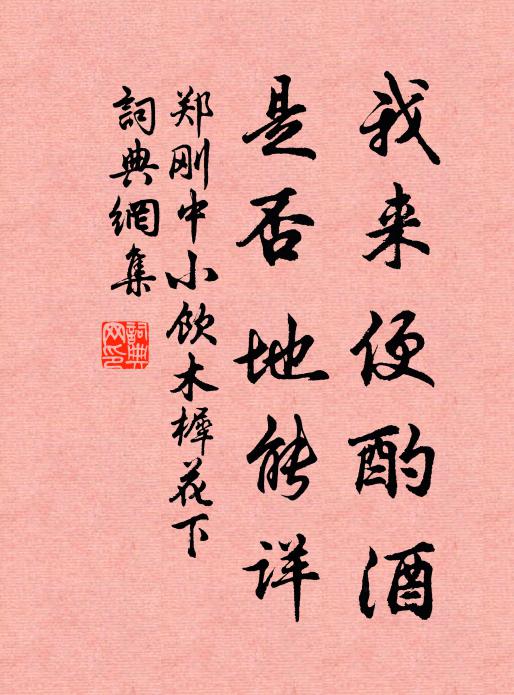 我来便酌酒
是否地能详
郑刚中小饮木樨花下
詞典網集
詞典
网印